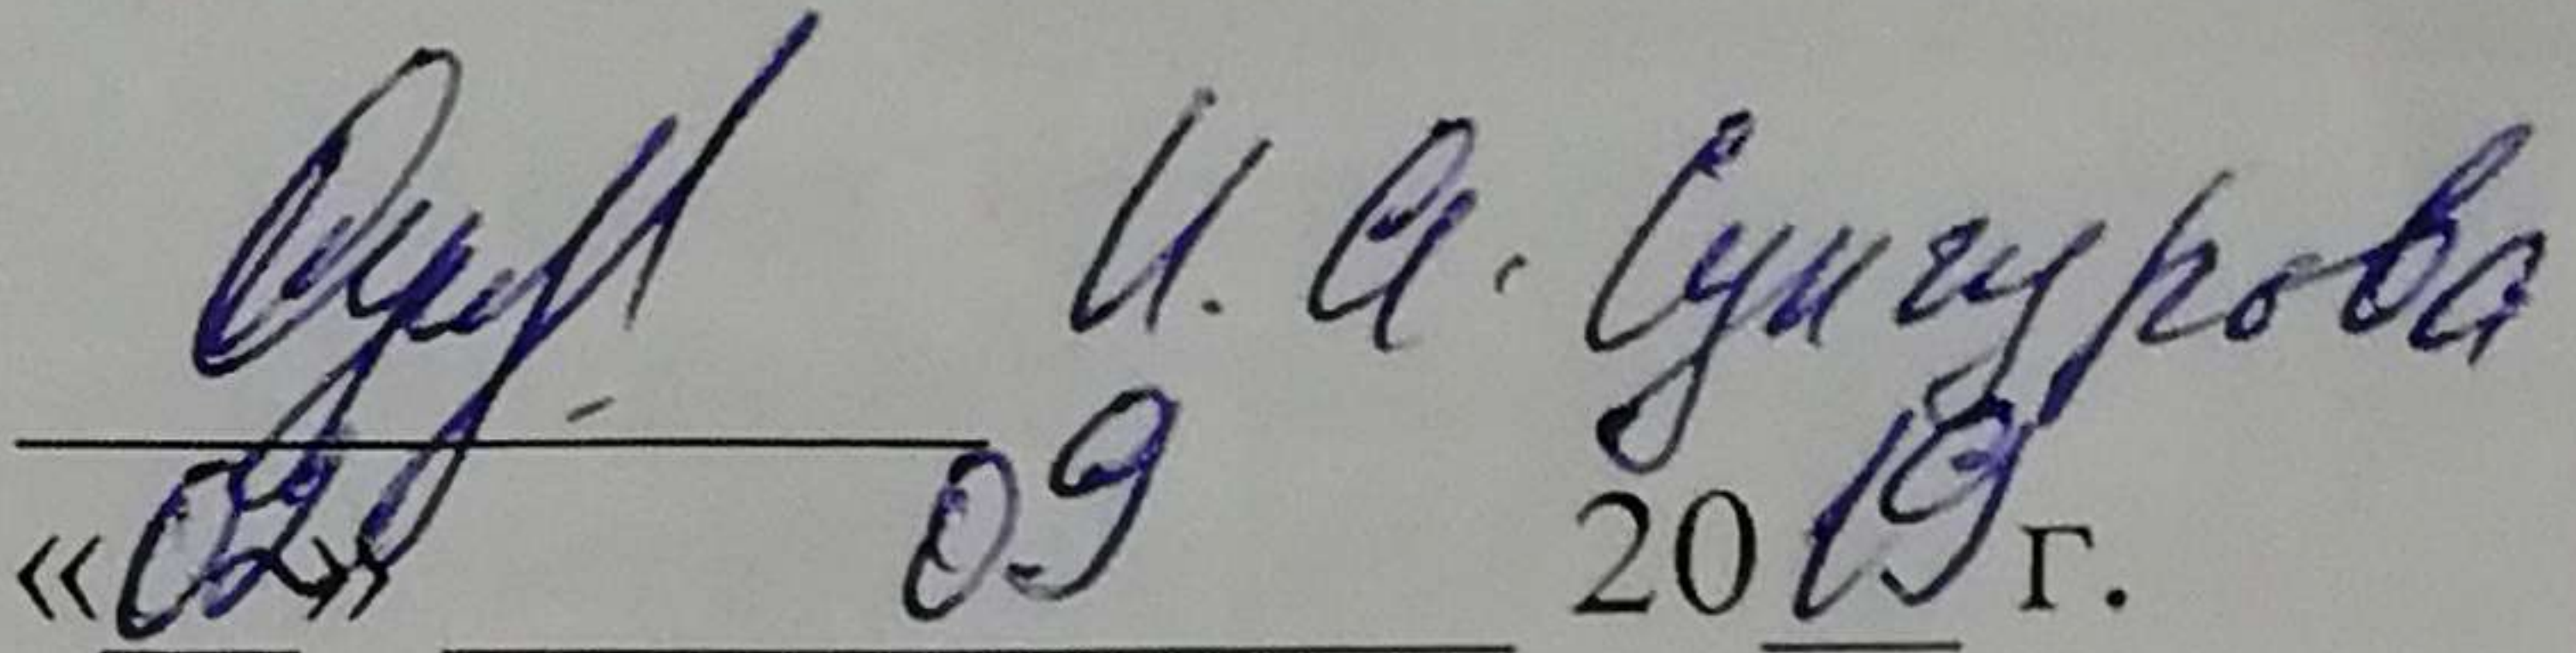 И. А. Сунгурова
«02» 09 2019 г.